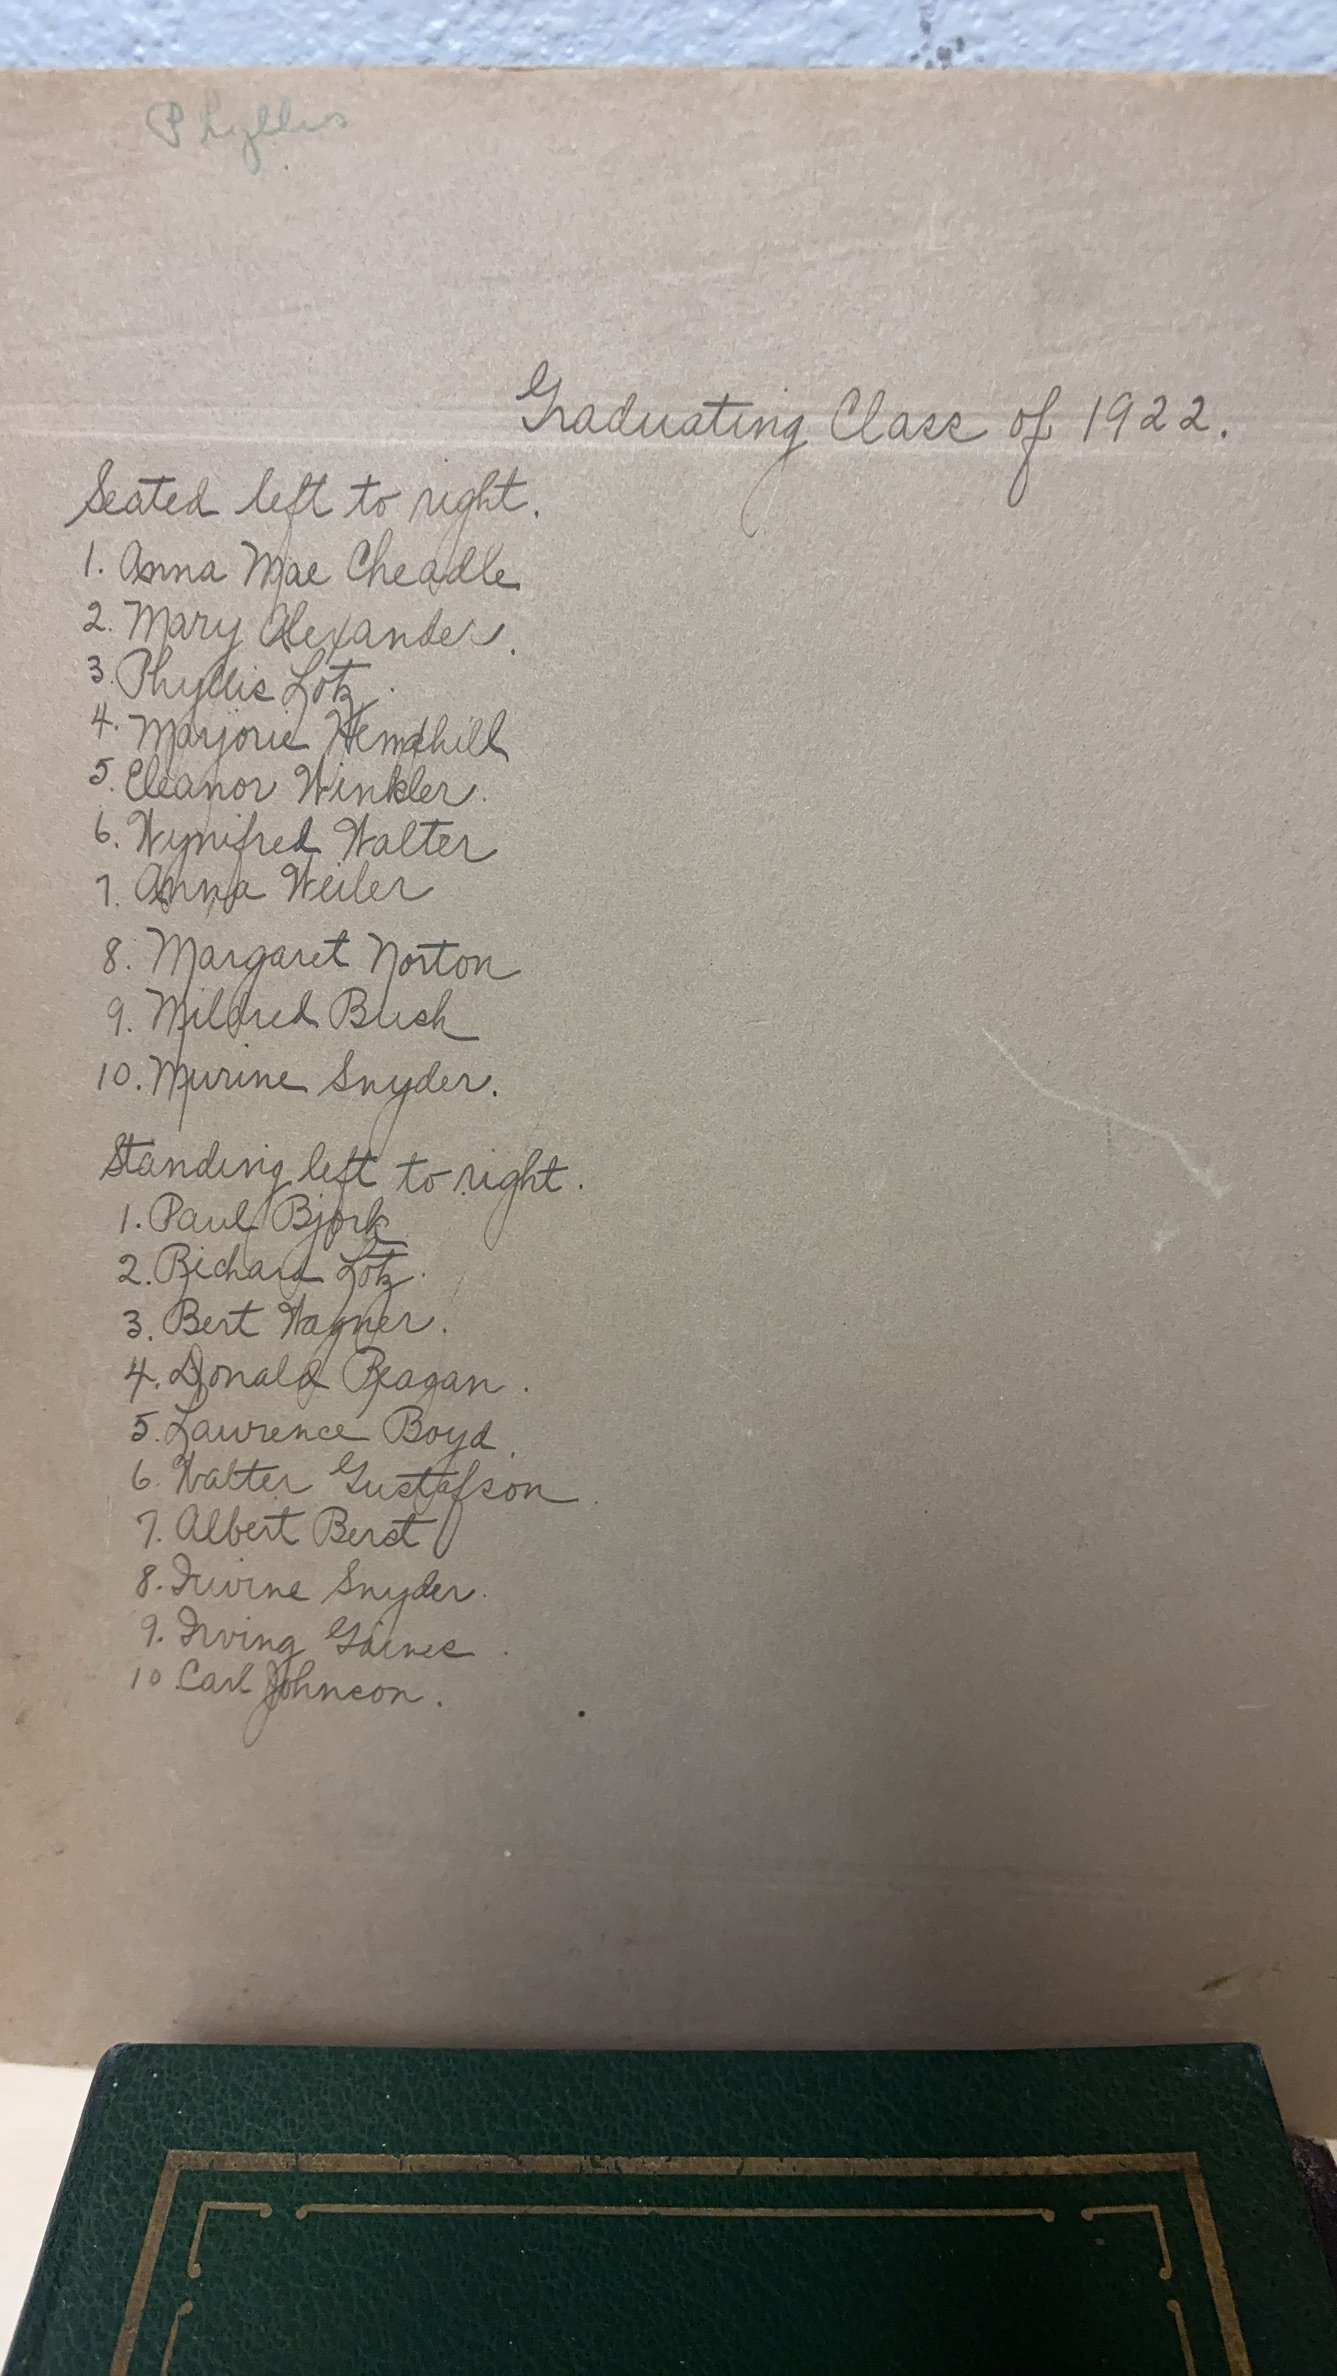 Phyllis
Graduating Class of 1922.
Seated left to right.
1. Anna Mae Cheadle
2. Mary Alexander.
3. Phyllis Lotz.
4. Marjorie Hemphill
5. Eleanor Winkler.
6. Wynifred Walter
7. Anna Weiler
8. Margaret Norton
9. Mildred Bush
10. Murine Snyder.
Standing left to right.
1. Paul Bjork
2. Richard Lotz.
3. Bert Wagner.
4. Donald Reagan.
5. Lawrence Boyd.
6. Walter Gustafson.
7. Albert Berst
8. Irvine Snyder.
9. Irving Gaines.
10 Carl Johnson.